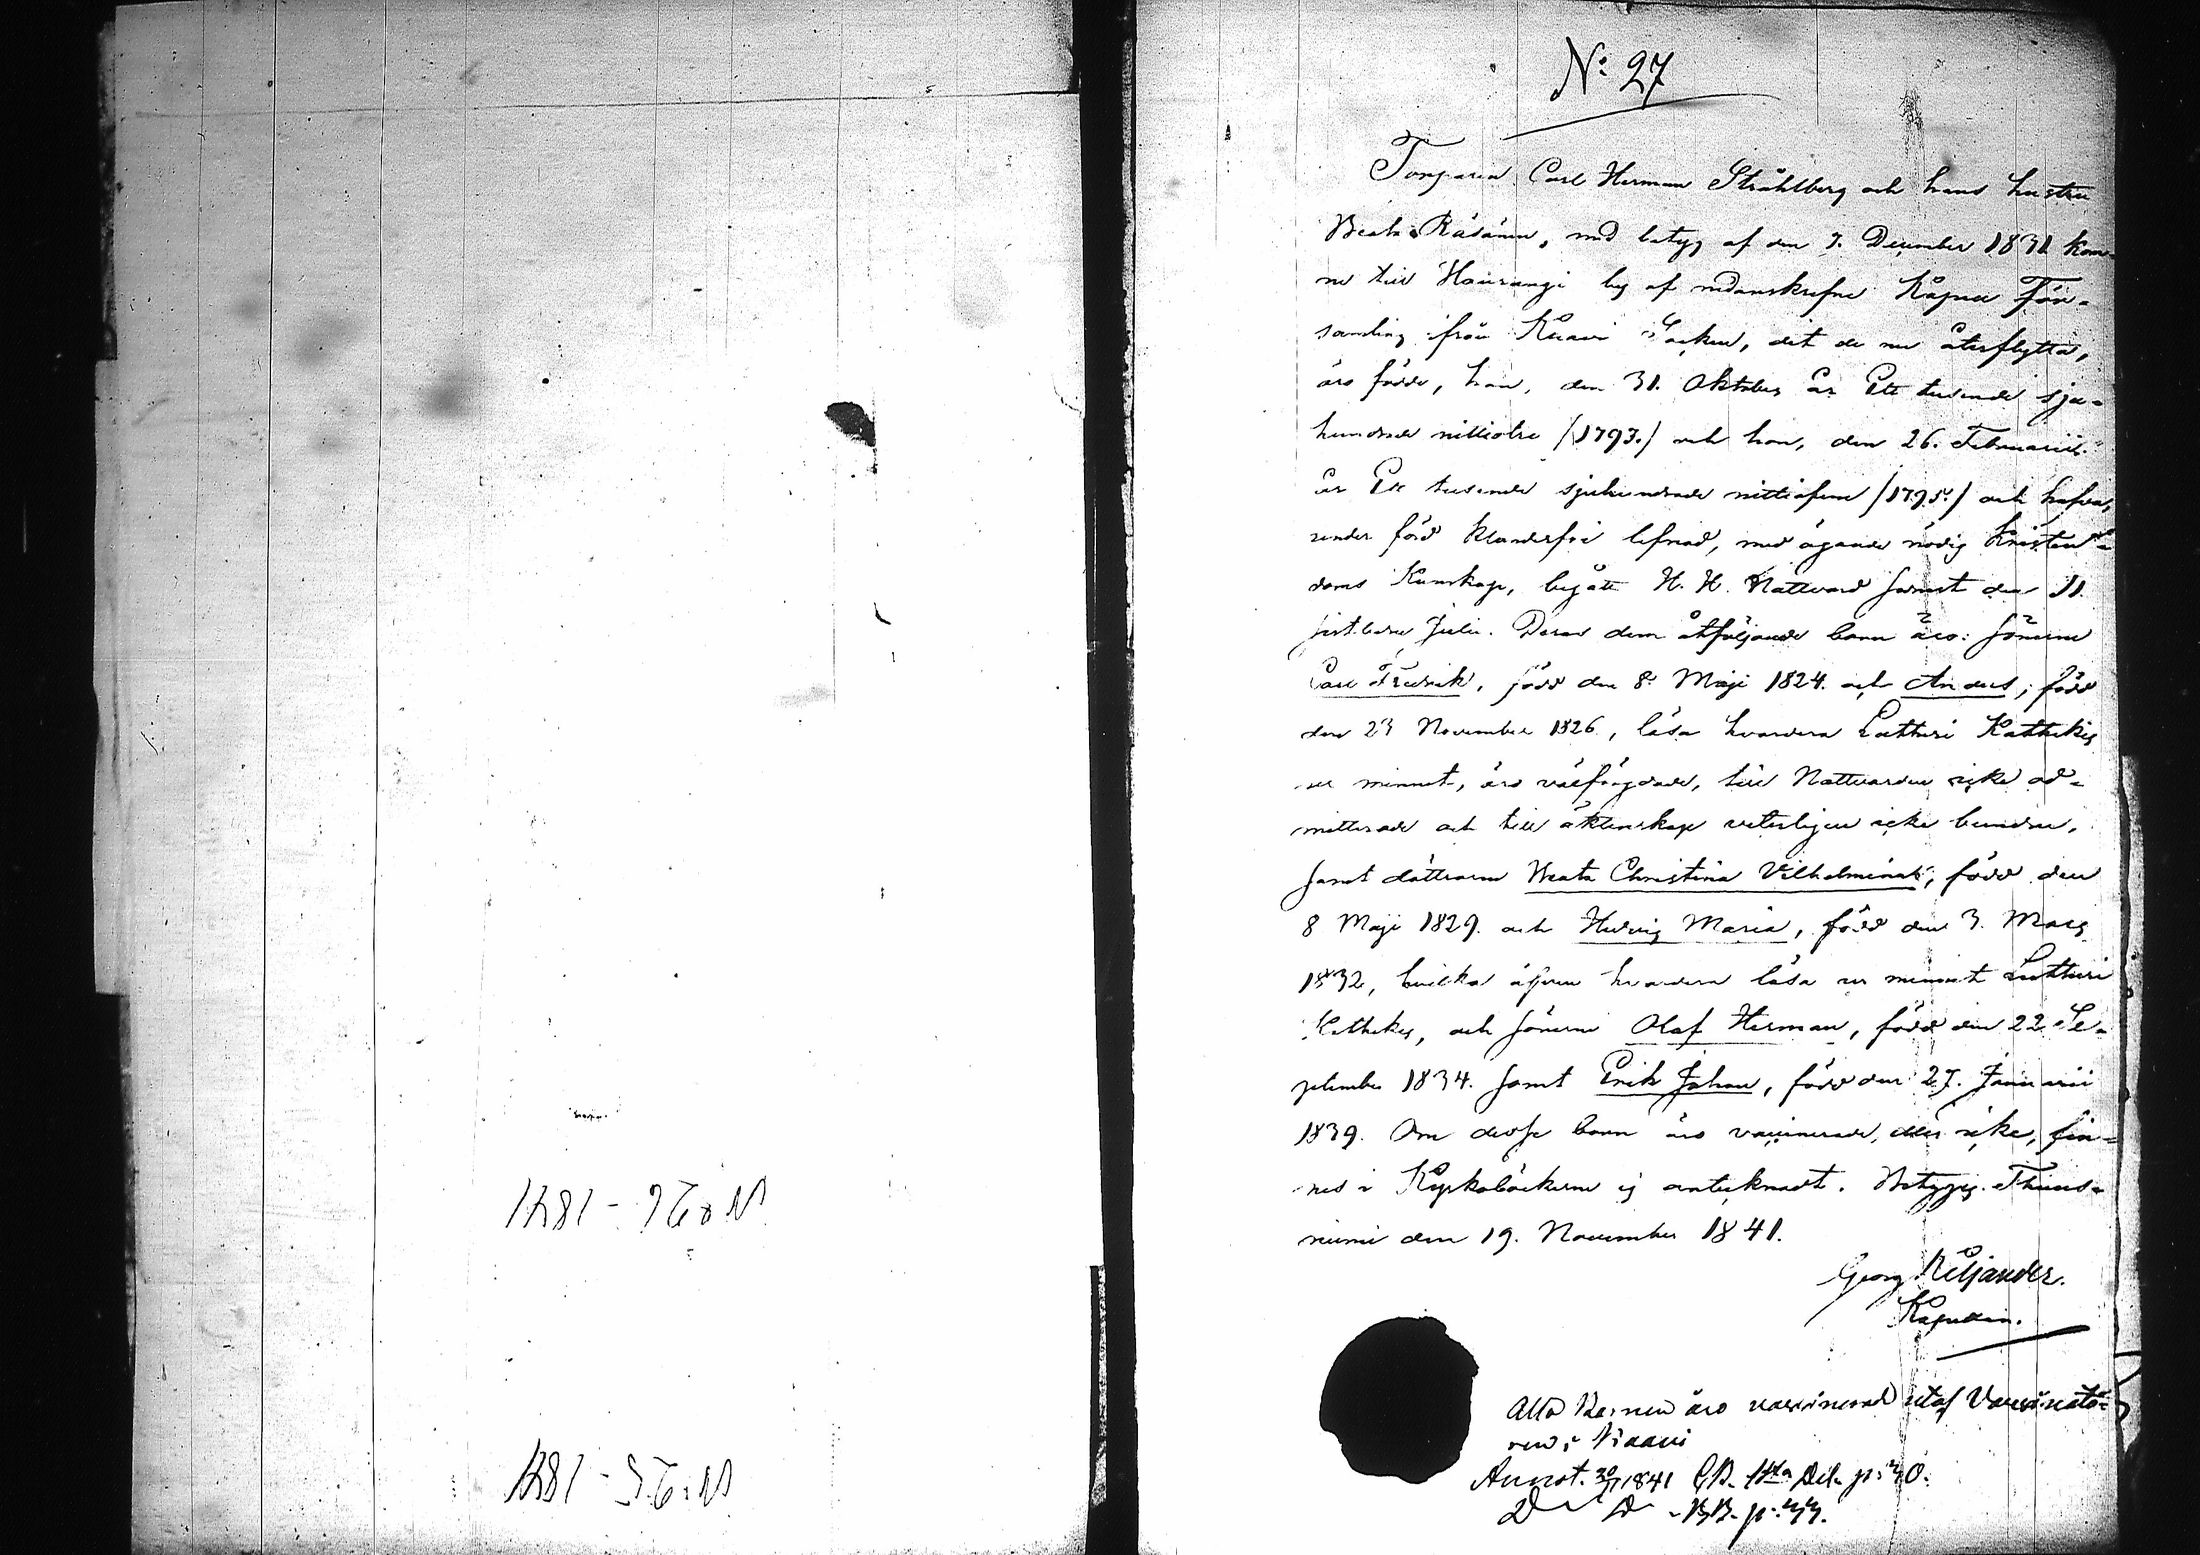 N:o 27
Torparen Carl Herman Stråhlberg och hans hustru
Beata Räsänen, med betyg af den 7. December 1831 kom-
ne till Hourangi by af nedanskrefne Kapell För-
samling ifrån Kiaavi Socken, dit de nu återflytta,
äro födde, han, den 31. Oktober år Ett tusende sju-
hundrade nittiotre /1793./ och hon, den 26. Februarii
år Ett tusende sjuhundrade nittiofem /1795./ och hafva,
under förd klanderfri lefnad, med ägande nödig Kristen-
doms Kunskap, begått H. H. Nattvard samt den 11.
sistledne Julii. Deras dem åtföljande barn äro: Sönerne
Carl Fredrik, född den 8. Maji 1824. och Anders, född
den 23 November 1826, läsa hvardera Lutheri Kathekes
ur minnet, äro välfrägdade, till Nattvarden icke ad-
mitterade och till äktenskap veterligen icke bundne,
samt döttrarne Beata Christina Vilhelmina, född den
8 Maji 1829. och Hedvig Maria, född den 3. Mars
1832, hvilka äfven hvardera läsa ur minnet Lutheri
Kathekes, och sönerne Olaf Herman, född den 22 Se-
ptember 1834. samt Erik Johan, född den 27. Januarii
1839. Om desse barn äro vaccinerade, eller icke, fin-
nes i Kyrkoböckerne ej antecknadt. Betygas. Thuus-
niemi den 19. November 1841.
Georg Kiljander.
Kapellan.
Alla Barnen äro vaccinerade utaf Vaccinatö-
ren i Kiaavi
Annot. 30/11 1841 C.B. 1sta Del. p: 30.
D D - BB. p: 33.
N:o 26 - 1841
N: 25 - 1841